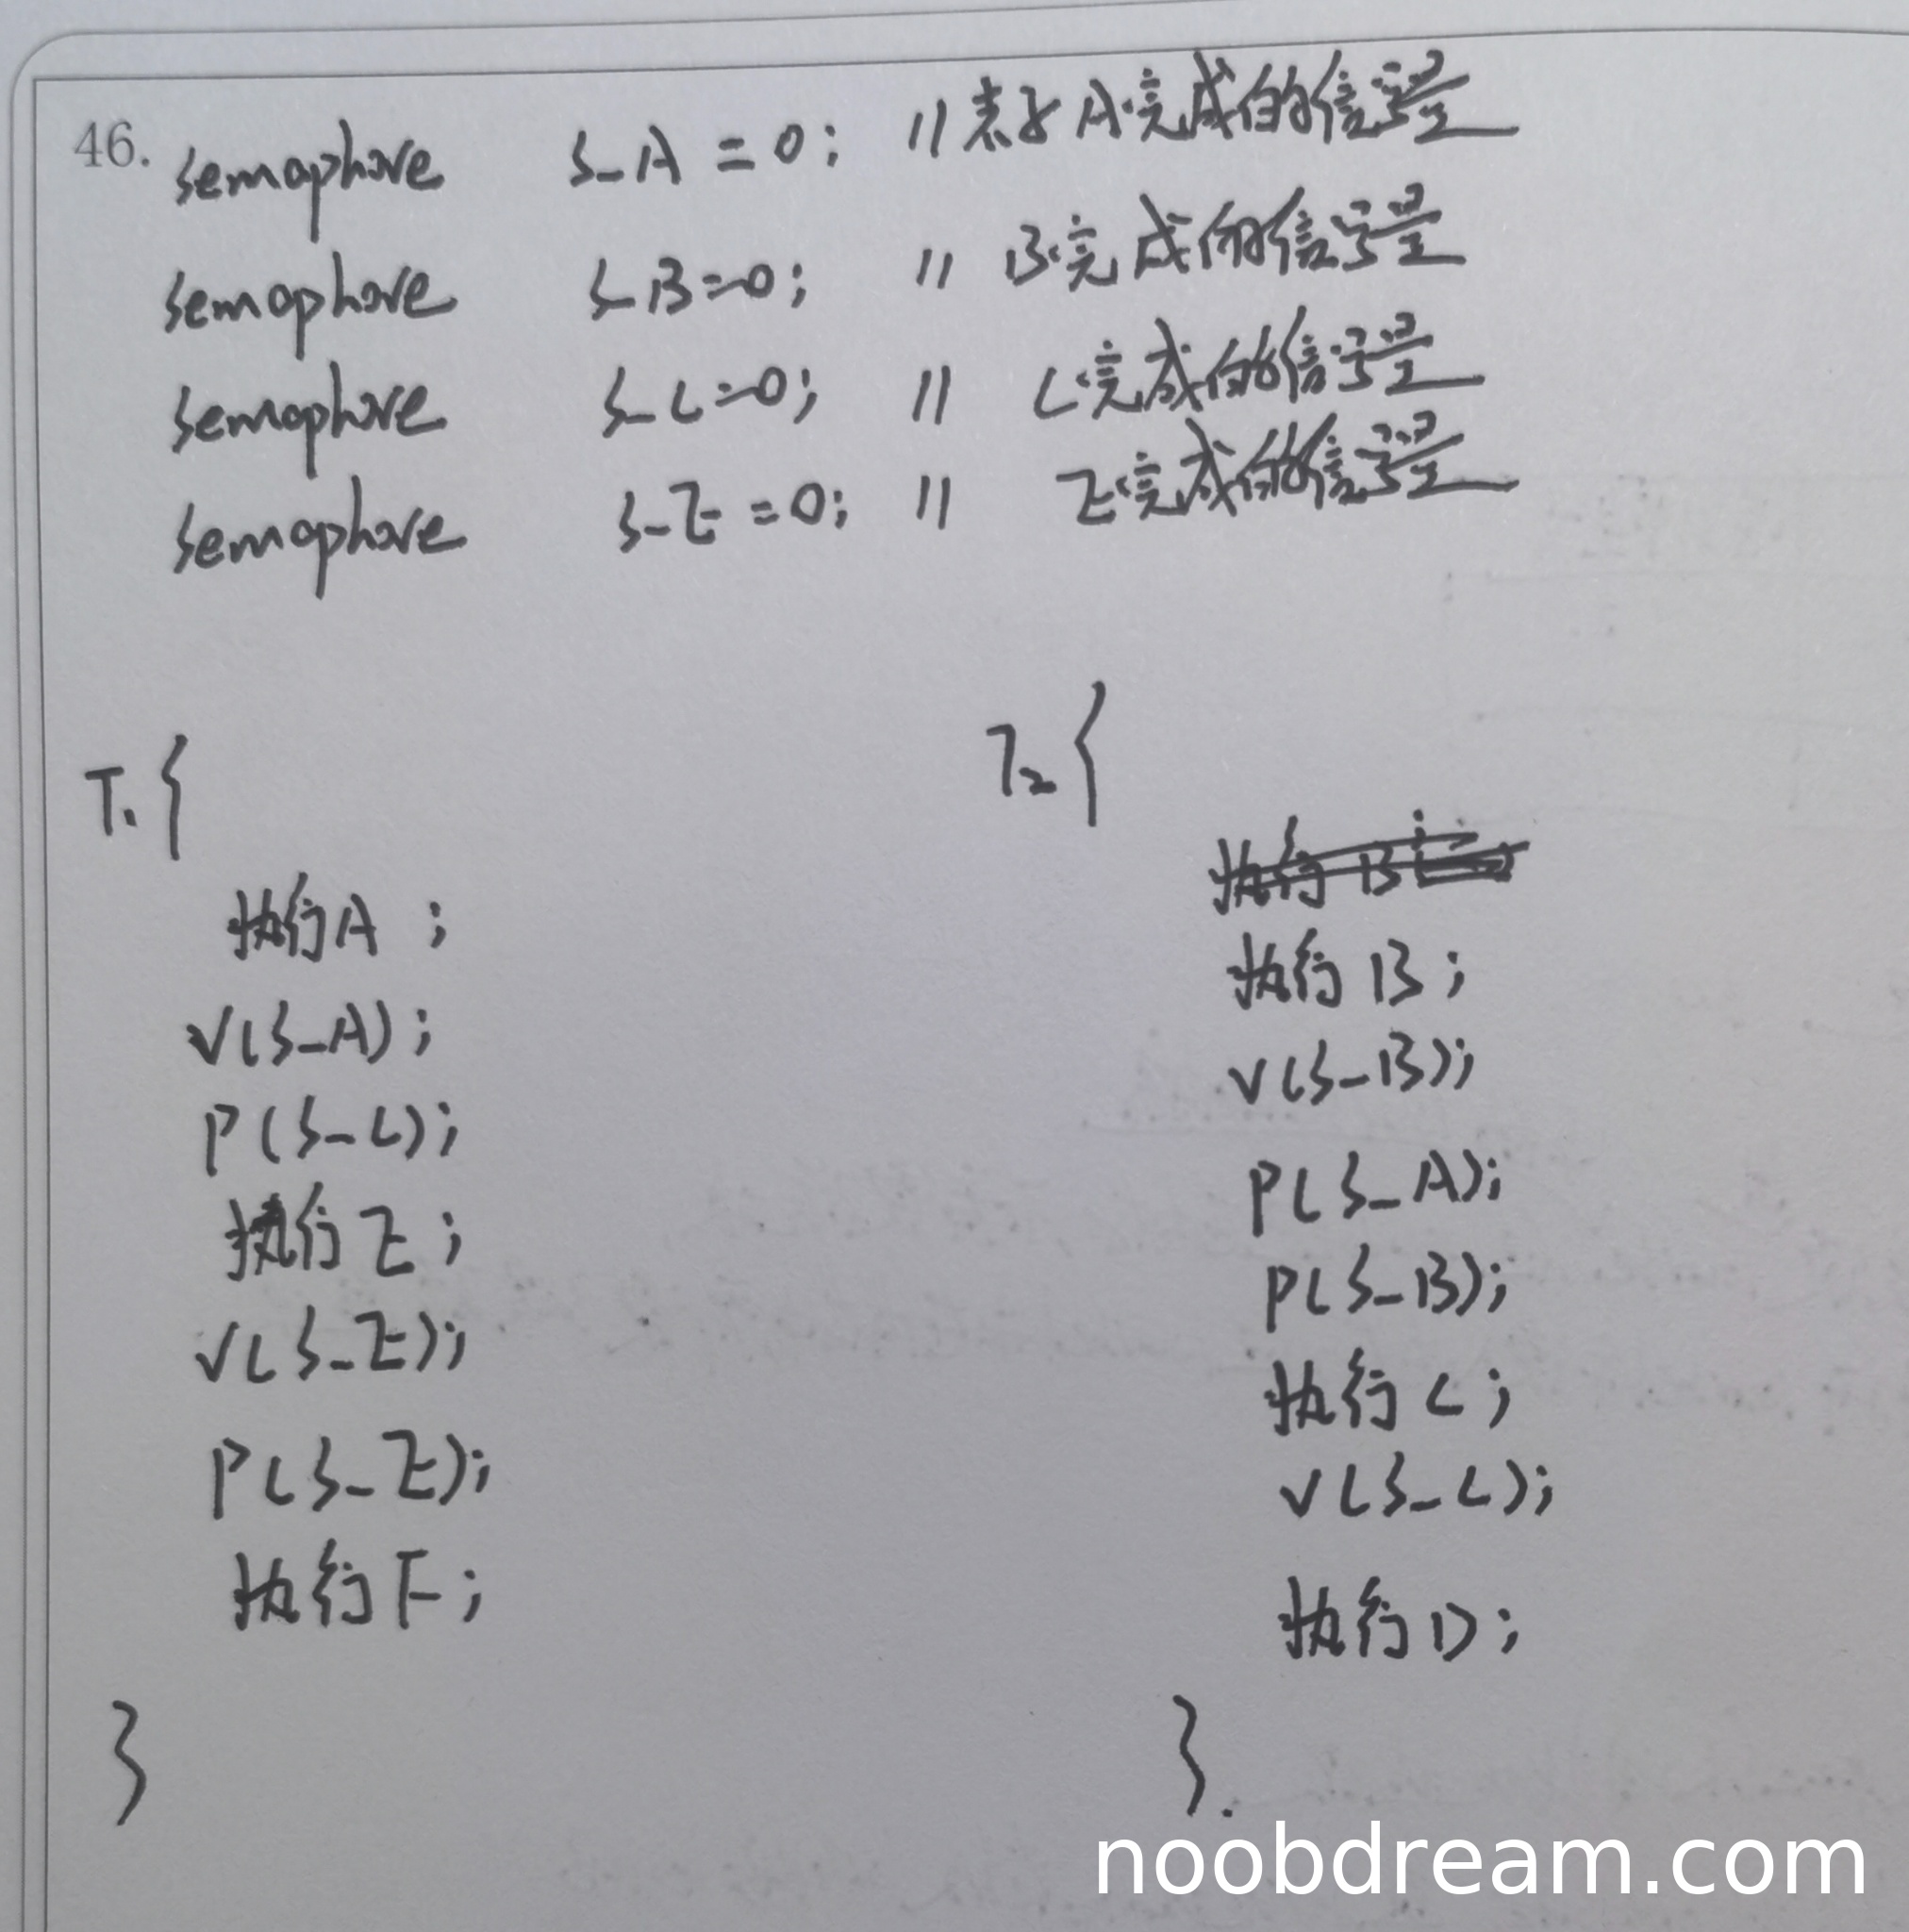 46. semaphore S_A = 0; // 表示A完成的信号量
semaphore S_B=0; // B完成的信号量
semaphore S_C=0; // C完成的信号量
semaphore S_E=0; // E完成的信号量
T1{
执行A;
V(S_A);
P(S_C);
执行E;
V(S_E);
P(S_E);
执行F;
}
T2{
执行B;
执行B;
V(S_B);
P(S_A);
P(S_B);
执行C;
V(S_C);
执行D;
}.
noobdream.com